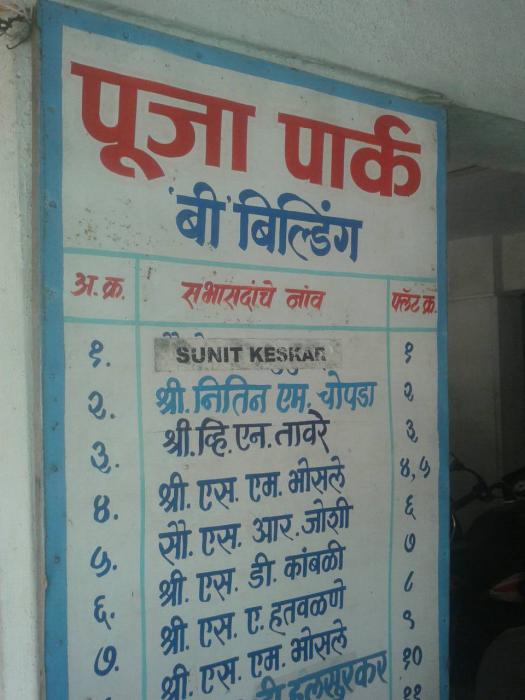 पूजा पार्क
'बी' बिल्डिंग
अ.क्र. सभासदांचे नांव फ्लॅट क्र.
१. SUNIT KESKAR १
२. श्री. नितिन एम. चोपडा २
३. श्री. व्हि. एन. तावरे ३
४. श्री. एस. एम. भोसले ४,५
५. सौ. एस. आर. जोशी ६
६. श्री. एस. डी. कांबळी ७
७. श्री. एस. ए. हतवळणे ८
श्री. एस. एम. भोसले ९
हलसुरकर १०
११